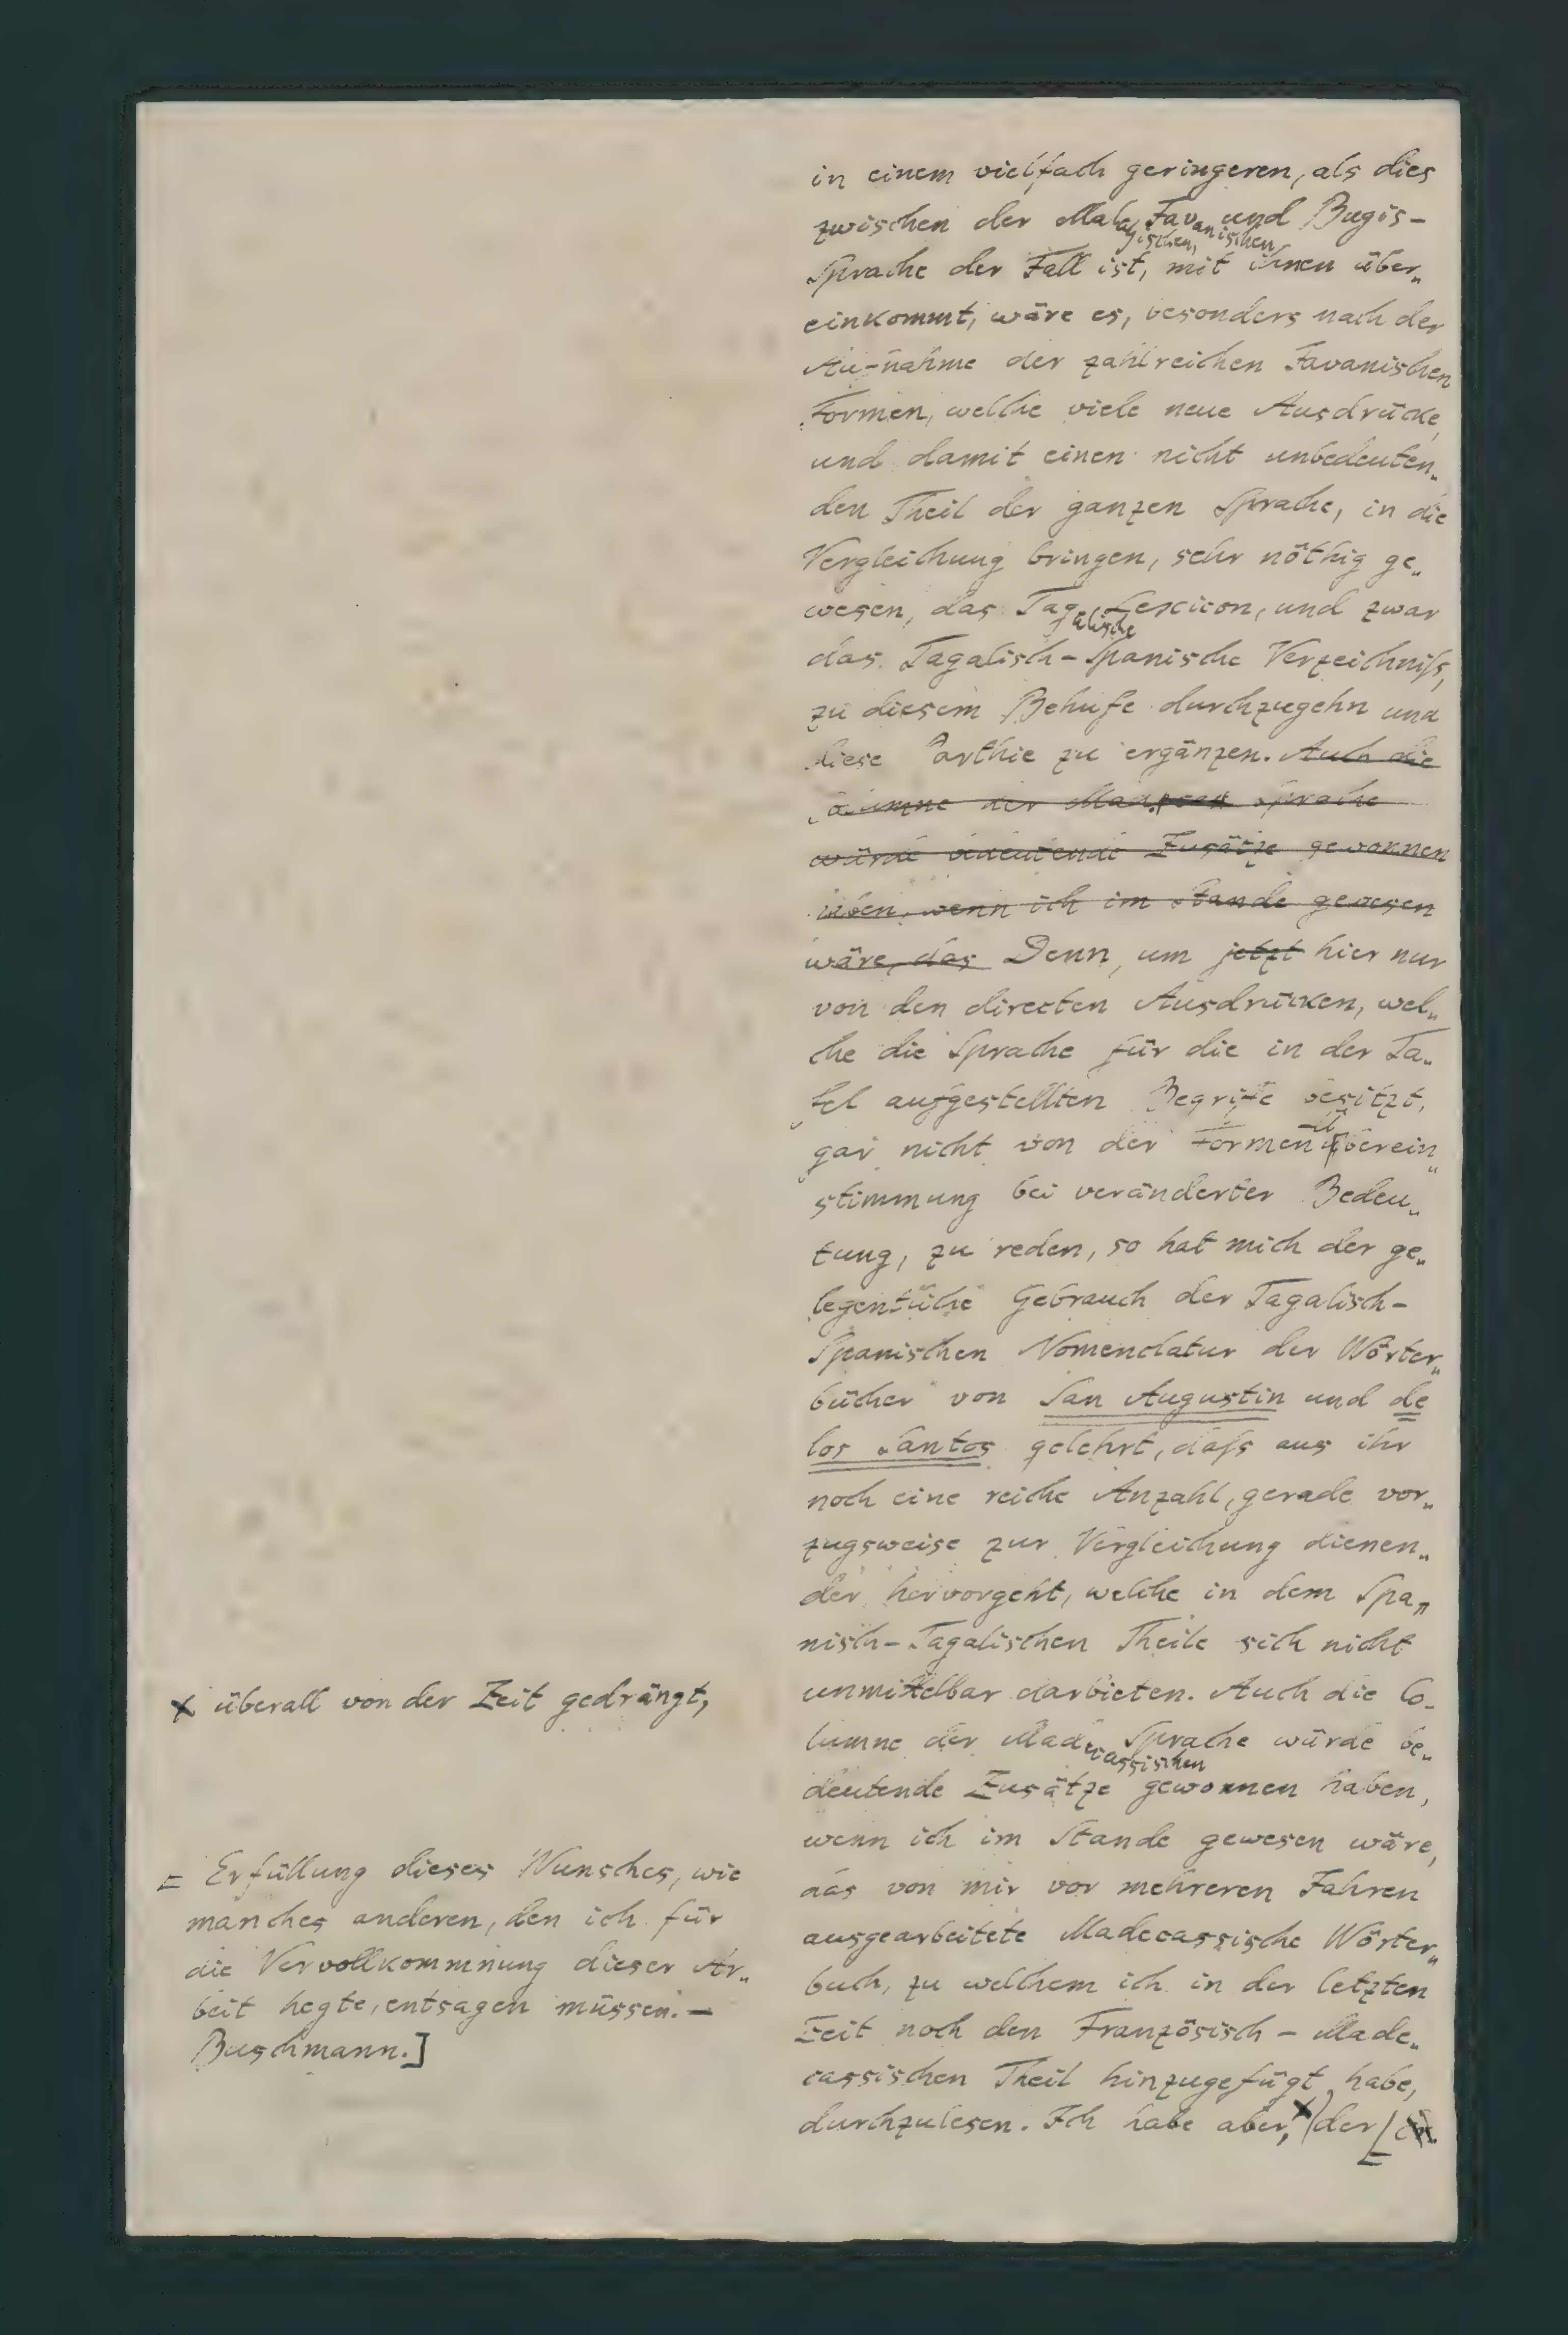 in einem vielfach geringeren, als dies
zwischen der Malayischen, Javanischen und Bugis-
Sprache der Fall ist, mit ihnen über„
einkommt, wäre es, besonders nach der
Aufnahme der zahlreichen Javanischen
Formen, welche viele neue Ausdrücke,
und damit einen nicht unbedeuten„
den Theil der ganzen Sprache, in die
Vergleichung bringen, sehr nöthig ge„
wesen, das Tagalische Lexicon, und zwar
das Tagalisch-Spanische Verzeichniſs,
zu diesem Behufe durchzugehn und
diese Parthie zu ergänzen. Auch die
Columne der Sprache
würde bedeutende Zusätze gewonnen
haben, wenn ich im Stande gewesen
wäre, das Denn, um jetzt hier nur
von den directen Ausdrücken, wel„
che die Sprache für die in der Ta„
fel aufgestellten Begriffe besitzt,
gar nicht von der Formenüberein„
stimmung bei veränderter Bedeu„
tung, zu reden, so hat mich der ge„
legentliche Gebrauch der Tagalisch-
Spanischen Nomenclatur der Wörter„
bücher von San Augustin und de
los Santos gelehrt, daſs aus ihr
noch eine reiche Anzahl, gerade vor„
zugsweise zur Vergleichung dienen„
der hervorgeht, welche in dem Spa„
nisch-Tagalischen Theile sich nicht
unmittelbar darbieten. Auch die Co-
lumne der Madecassischen Sprache würde be„
deutende Zusätze gewonnen haben,
wenn ich im Stande gewesen wäre,
das von mir vor mehreren Jahren
ausgearbeitete Madecassische Wörter„
buch, zu welchem ich in der letzten
Zeit noch den Französisch-Made„
cassischen Theil hinzugefügt habe,
durchzulesen. Ich habe aber, x der
x überall von der Zeit gedrängt,
= Erfüllung dieses Wunsches, wie
manches anderen, den ich für
die Vervollkommnung dieser Ar„
beit hegte, entsagen müssen. —
Buschmann.]